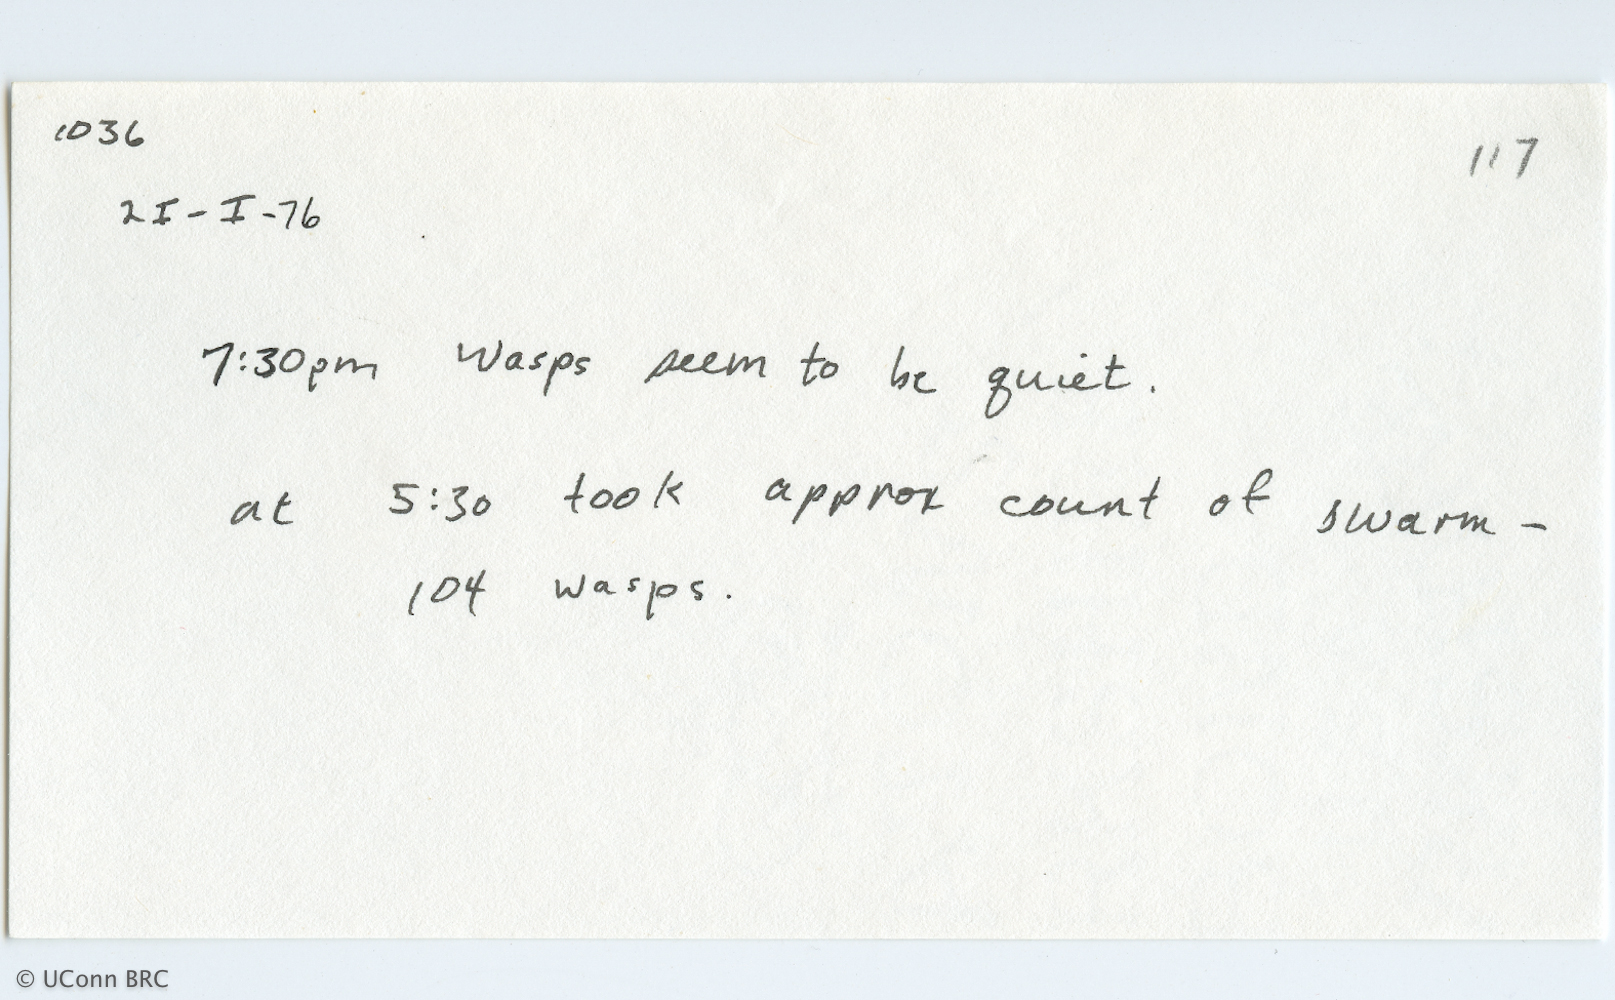 1036
117
21-I-76
7:30pm Wasps seem to be quiet.
at 5:30 took approx count of swarm -
104 wasps.
© UConn BRC